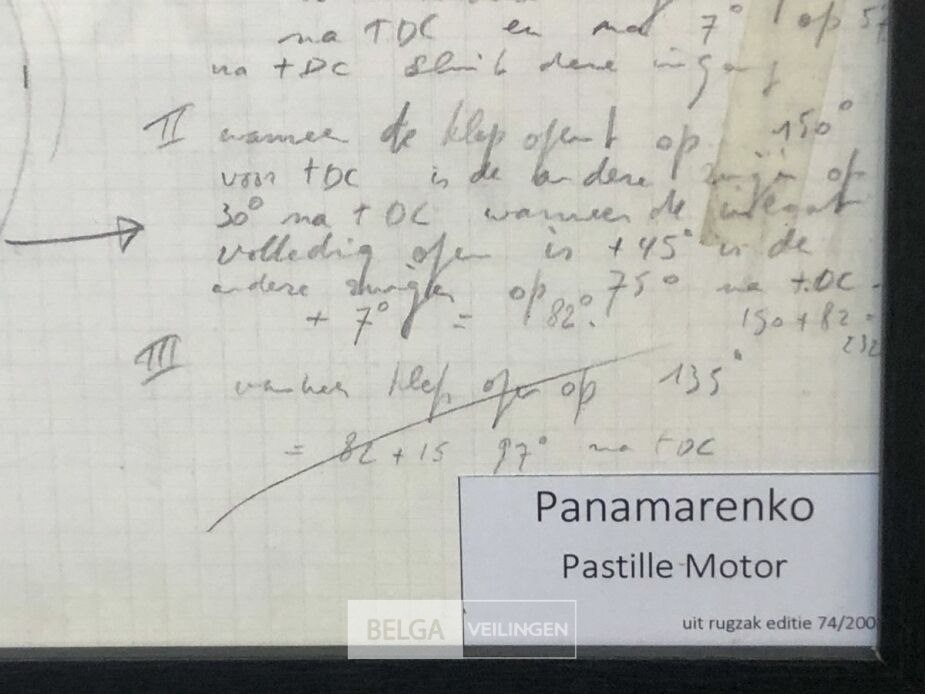 na TDC en met 7° op 5
na TDC sluit deze ingang
II wanneer de klep opent op 150°
voor TDC is de andere zuiger op
30° na TDC wanneer de inlaat
volledig open is +45° is de
andere zuiger op 75° na TDC.
+ 7° = 82°.
150 + 82 =
232
III
wanneer klep open op 135°
= 82 + 15 97° na TDC
Panamarenko
Pastille Motor
uit rugzak editie 74/200
BELGA VEILINGEN